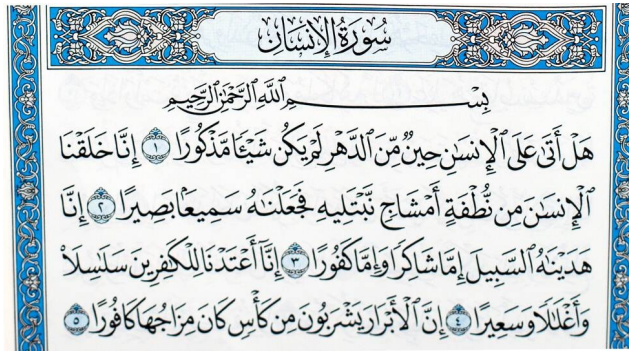 سُورَةُ الإِنسَانِ
بِسْمِ ٱللَّهِ ٱلرَّحْمَٰنِ ٱلرَّحِيمِ
هَلْ أَتَىٰ عَلَى ٱلْإِنسَٰنِ حِينٌ مِّنَ ٱلدَّهْرِ لَمْ يَكُن شَيْـًٔا مَّذْكُورًا ١ إِنَّا خَلَقْنَا
ٱلْإِنسَٰنَ مِن نُّطْفَةٍ أَمْشَاجٍ نَّبْتَلِيهِ فَجَعَلْنَٰهُ سَمِيعًۢا بَصِيرًا ٢ إِنَّا
هَدَيْنَٰهُ ٱلسَّبِيلَ إِمَّا شَاكِرًا وَإِمَّا كَفُورًا ٣ إِنَّآ أَعْتَدْنَا لِلْكَٰفِرِينَ سَلَٰسِلَا۟
وَأَغْلَٰلًا وَسَعِيرًا ٤ إِنَّ ٱلْأَبْرَارَ يَشْرَبُونَ مِن كَأْسٍ كَانَ مِزَاجُهَا كَافُورًا ٥